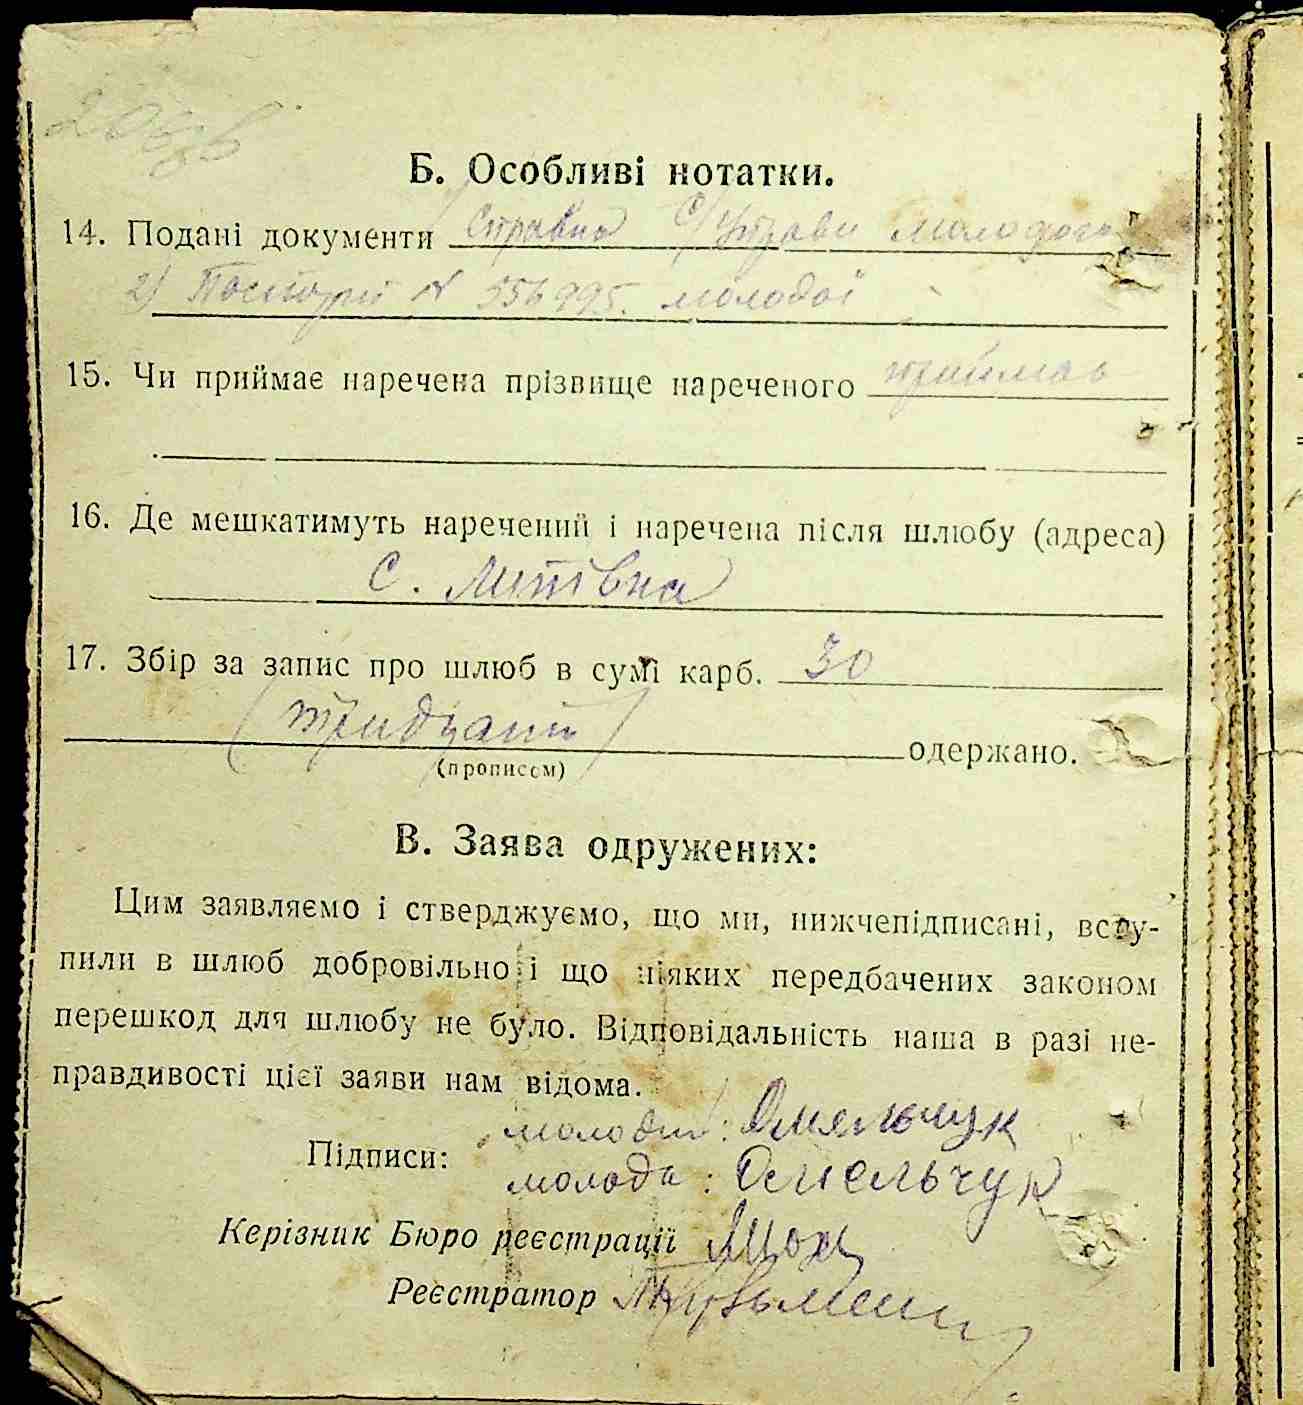 Б. Особливі нотатки.
14. Подані документи Справка С/Управи молодого
2) Паспорт № 556995. молодої
15. Чи приймає наречена прізвище нареченого приймає
16. Де мешкатимуть наречений і наречена після шлюбу (адреса)
с. Митівка
17. Збір за запис про шлюб в сумі карб. 30
(тридцать)
одержано.
(прописом)
В. Заява одружених:
Цим заявляємо і стверджуємо, що ми, нижчепідписані, всту-
пили в шлюб добровільно і що ніяких передбачених законом
перешкод для шлюбу не було. Відповідальність наша в разі не-
правдивості цієї заяви нам відома.
молодий: Омельчук
Підписи:
молода: Омельчук
Керізник Бюро реєстрації
Реєстратор